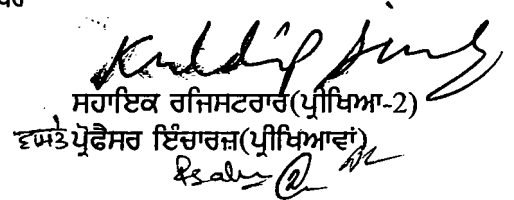 Kuldip Singh
ਸਹਾਇਕ ਰਜਿਸਟਰਾਰ(ਪ੍ਰੀਖਿਆ-2)
ਵਾਸਤੇ ਪ੍ਰੋਫੈਸਰ ਇੰਚਾਰਜ਼(ਪ੍ਰੀਖਿਆਵਾਂ)